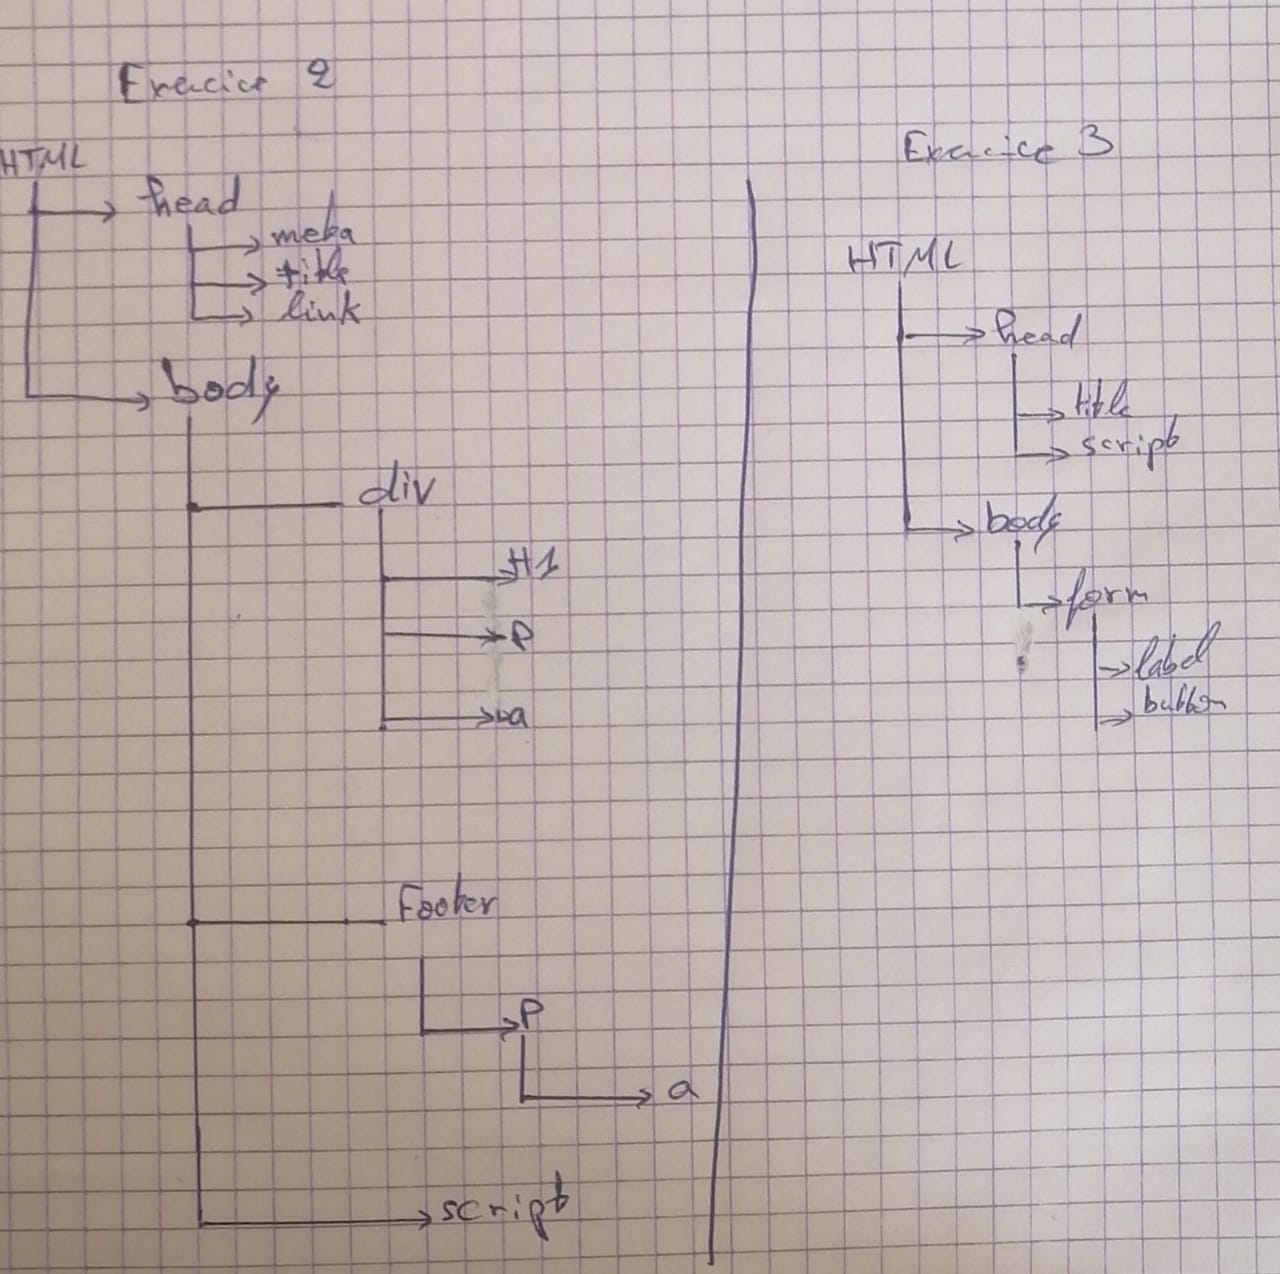 Exercice 2
HTML
head
meta
title
link
body
div
H1
P
a
Footer
P
a
script
Exercice 3
HTML
head
title
script
body
form
label
button